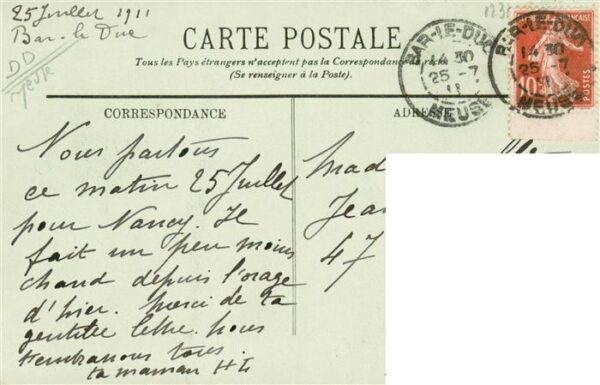 25 Juillet 1911
Bar-le Duc
DD
CARTE POSTALE
Tous les Pays étrangers n'acceptent pas la Correspondance au recto
(Se renseigner à la Poste.)
BAR-LE-DUC
14 30
25 -7
11
MEUSE
BAR-LE-DUC
14 30
25 -7
11
MEUSE
FRANÇAISE
10
POSTES
CORRESPONDANCE
ADRESSE
Nous partons
ce matin 25 Juillet
pour Nancy. Il
fait un peu moins
chaud depuis l'orage
d'hier. Merci de ta
gentille lettre. Nous
t'embrassons tous.
ta maman HL
Mad
Jea
47